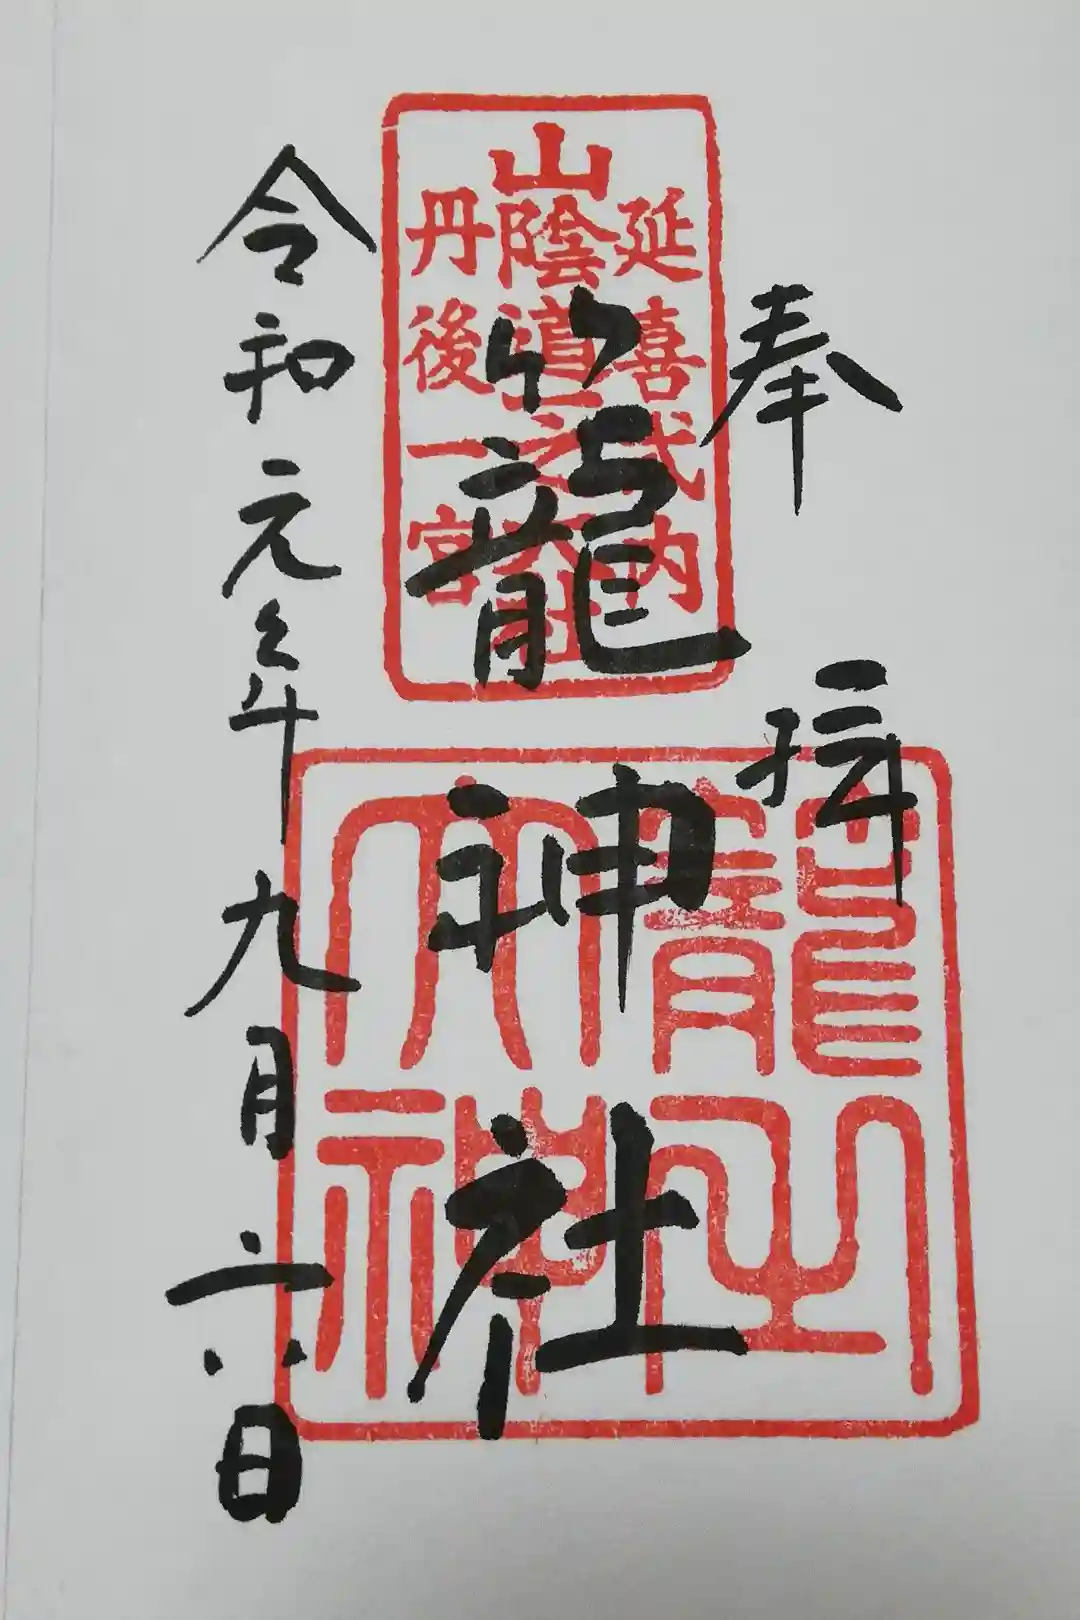 奉拝
延喜式内
山陰道一之大社
丹後一宮
籠神社
令和元年九月六日